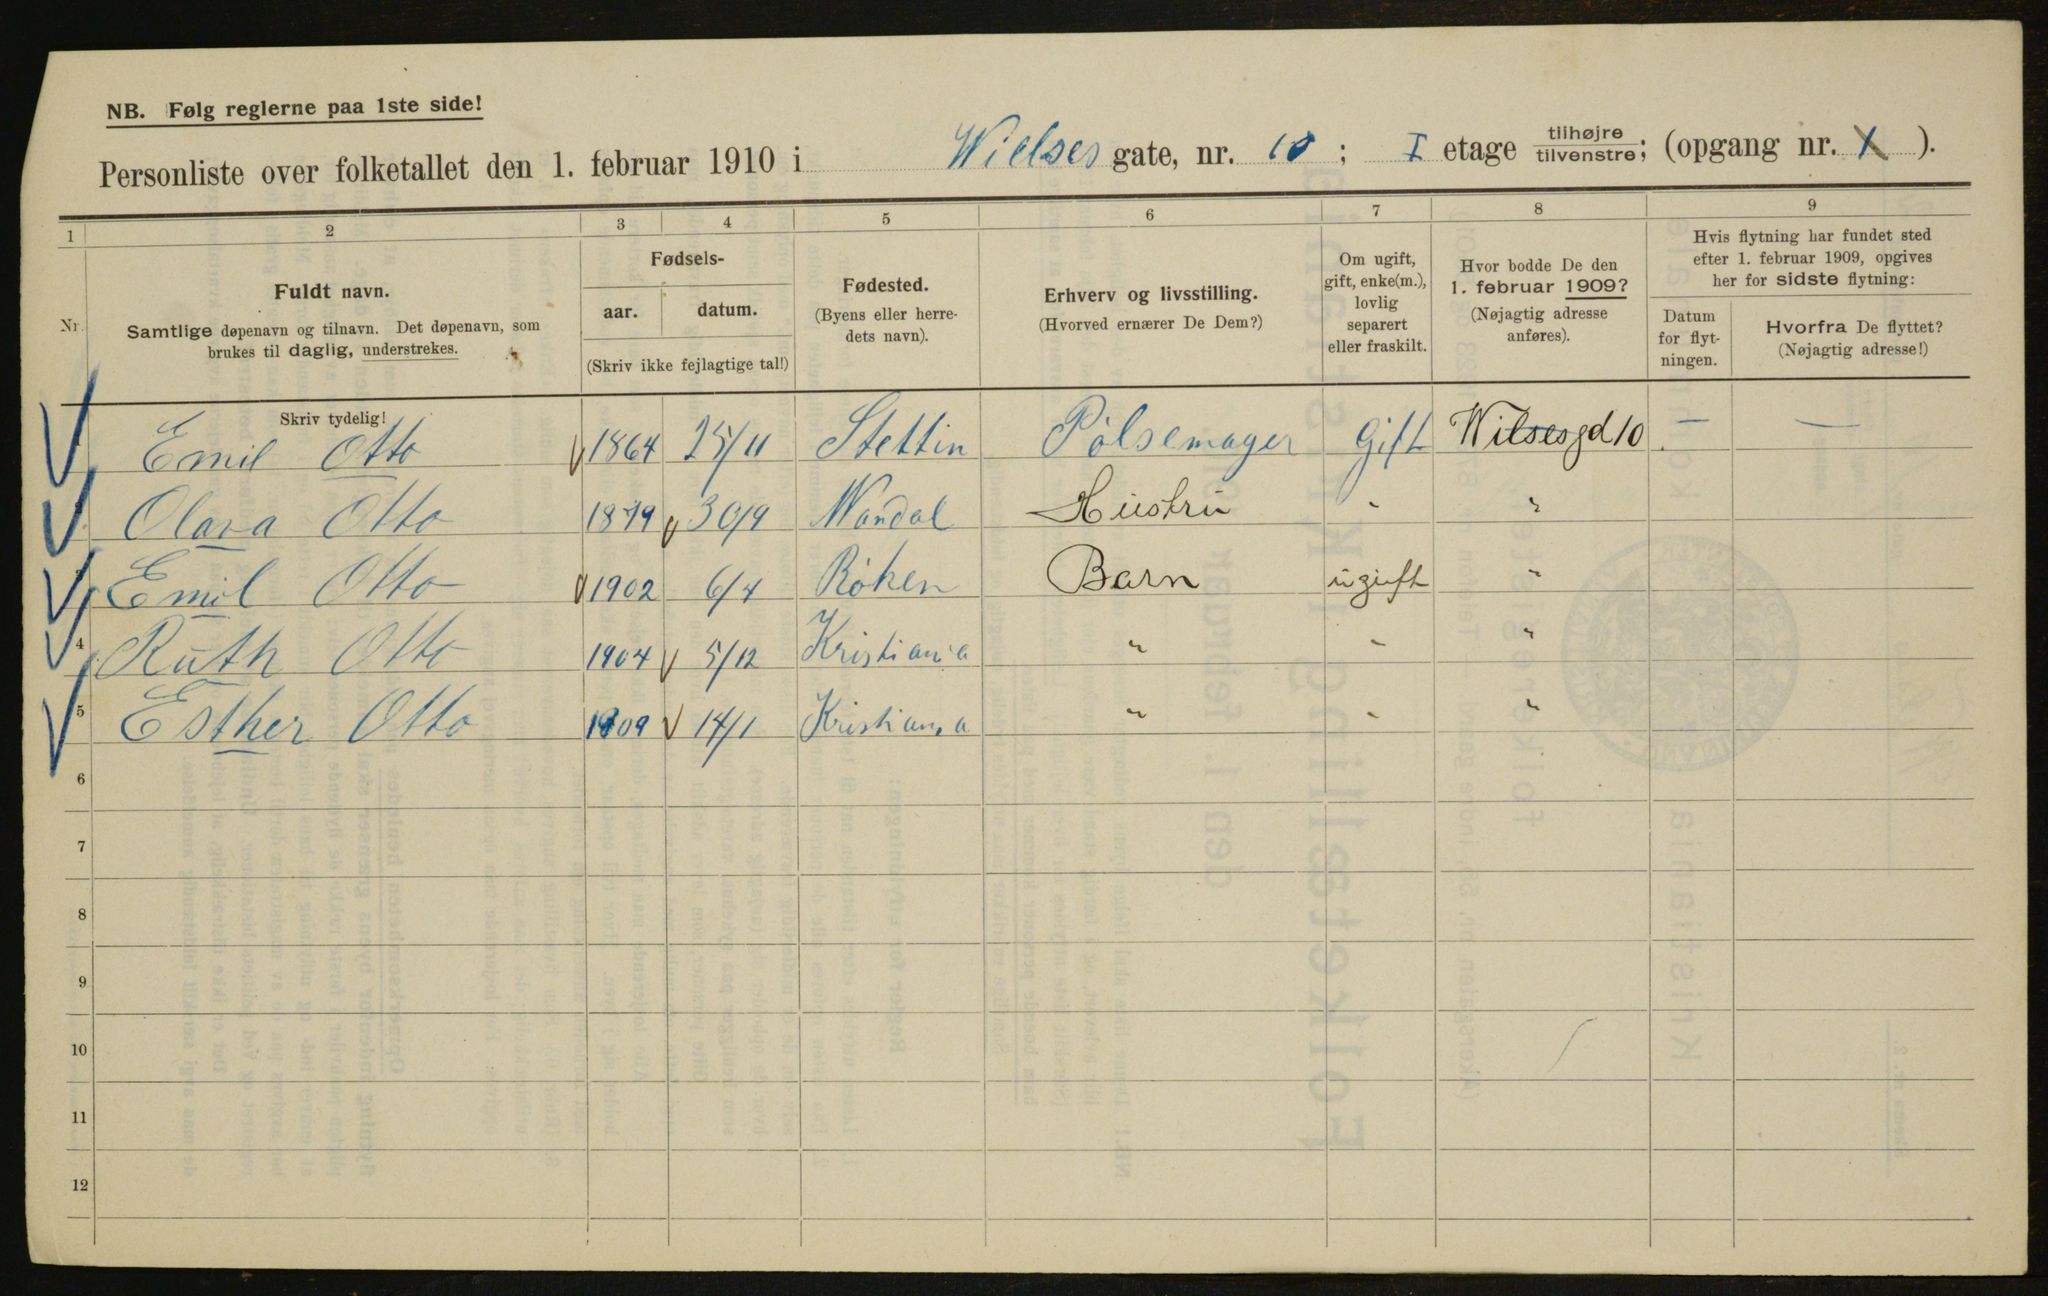 NB. Følg reglerne paa 1ste side!
Personliste over folketallet den 1. februar 1910 i Wielses gate, nr. 10 ; I etage tilhøjre/tilvenstre; (opgang nr. X ).
1 2 3 4 5 6 7 8 9
Nr.
Fuldt navn.
Samtlige døpenavn og tilnavn. Det døpenavn, som
brukes til daglig, understrekes.
Fødsels-
aar. datum.
(Skriv ikke fejlagtige tal!)
Fødested.
(Byens eller herre-
dets navn).
Erhverv og livsstilling.
(Hvorved ernærer De Dem?)
Om ugift,
gift, enke(m.),
lovlig
separert
eller fraskilt.
Hvor bodde De den
1. februar 1909?
(Nøjagtig adresse
anføres).
Hvis flytning har fundet sted
efter 1. februar 1909, opgives
her for sidste flytning:
Datum
for flyt-
ningen.
Hvorfra De flyttet?
(Nøjagtig adresse!)
Skriv tydelig!
Emil Otto 1864 25/11 Stettin Pølsemager Gift Wilsesgd 10 — —
Olava Otto 1879 30/9 Wandal Hustru " "
3 Emil Otto 1902 6/4 Røken Barn ugift "
4 Ruth Otto 1904 5/12 Kristiania " " "
5 Esther Otto 1909 14/1 Kristiania " " "
6
7
8
9
10
11
12